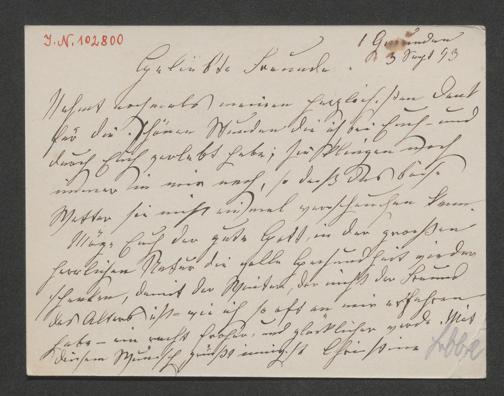 J.N. 102800
Gmunden
3 Sept 93
Geliebte Freunde.
Nehmt nochmals meinen herzlichsten Dank
für die schönen Stunden die ich bei Euch und
durch Euch verlebt habe; sie klingen noch
immer in mir nach, so daß das böse
Wetter sie nicht einmal verscheuchen kann.
Möge Euch der gute Gott, in der großen
herrlichen Natur die volle Gesundheit wieder
schenken, damit der Winter, der nicht der Freund
des Alters ist – wie ich so oft an mir erfahren
habe – ein recht froher, und glücklicher werde. Mit
diesem Wunsch grüßt innigst Christine